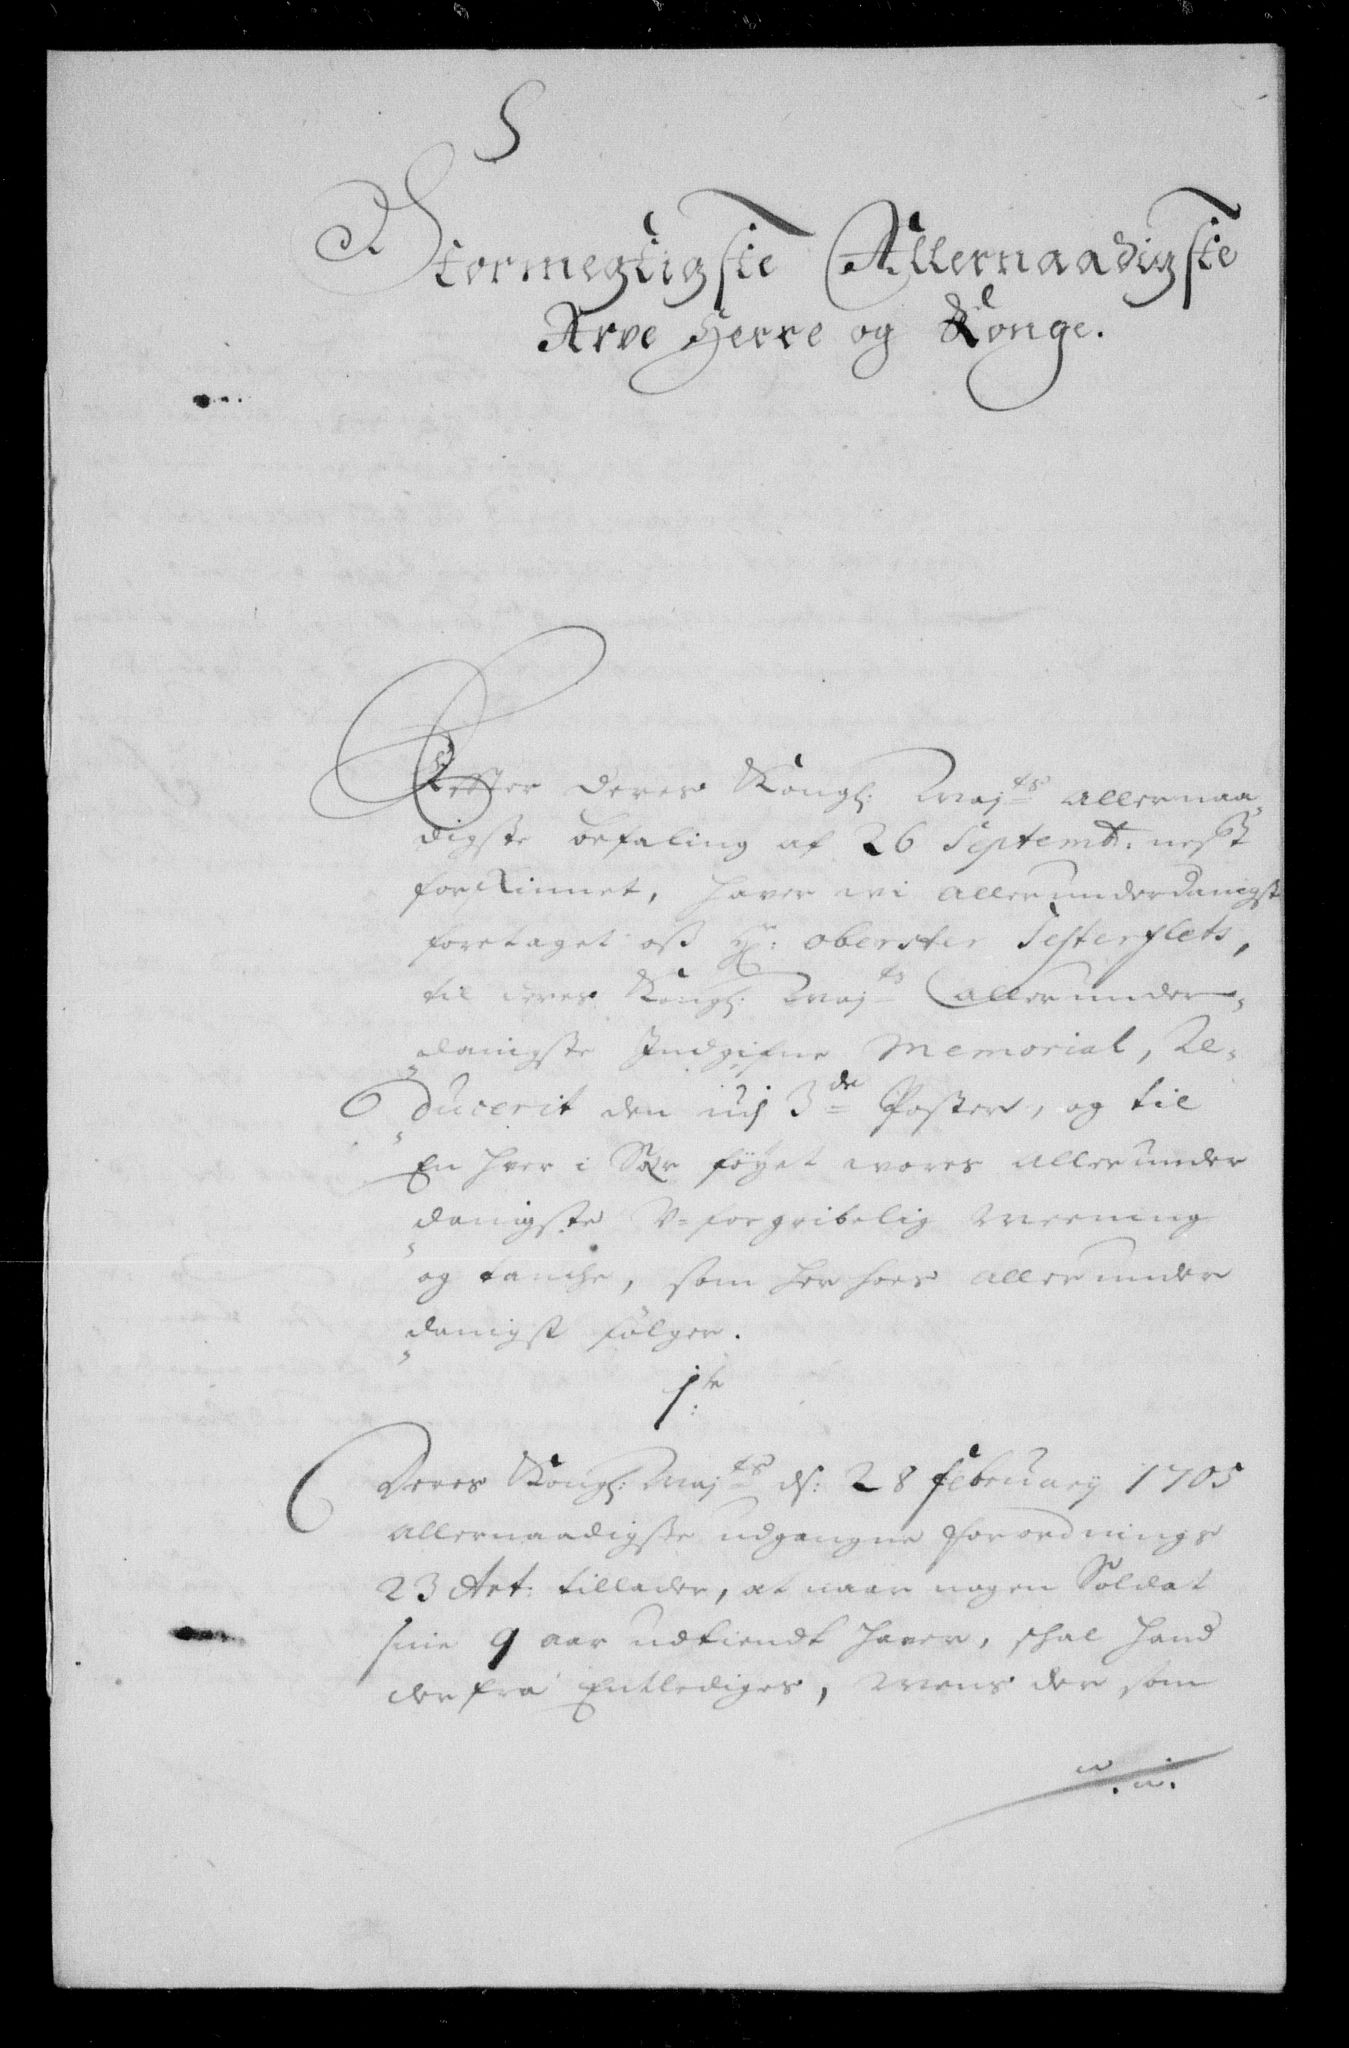 Stormegtigste Allernaadigste
Arve Herre og Konge.
Effter Deres Kongl: Maj:ts allernaa-
digste befaling af 26 Septemb: nest
forskinnet, haver wi allerunderdanigst
foretaget oss Hr: oberster
til deres Kongl: Maj:ts allerunder-
danigste Indgifne Memorial, Re-
ducerit den udj 3de Poster, og til
En hver i Sær føyet wores allerunder
danigste V-forgribelig Meening
og tanche, som her hoes allerunder
danigst følger.
1te
Deres Kongl: Maj:ts ds: 28 february 1705
allernaadigste udgangne forordnings
23 Art: tillader, at naar nogen Soldat
sine 9 aar udtiendt haver, schal hand
derfra Entlediges, Mens der som